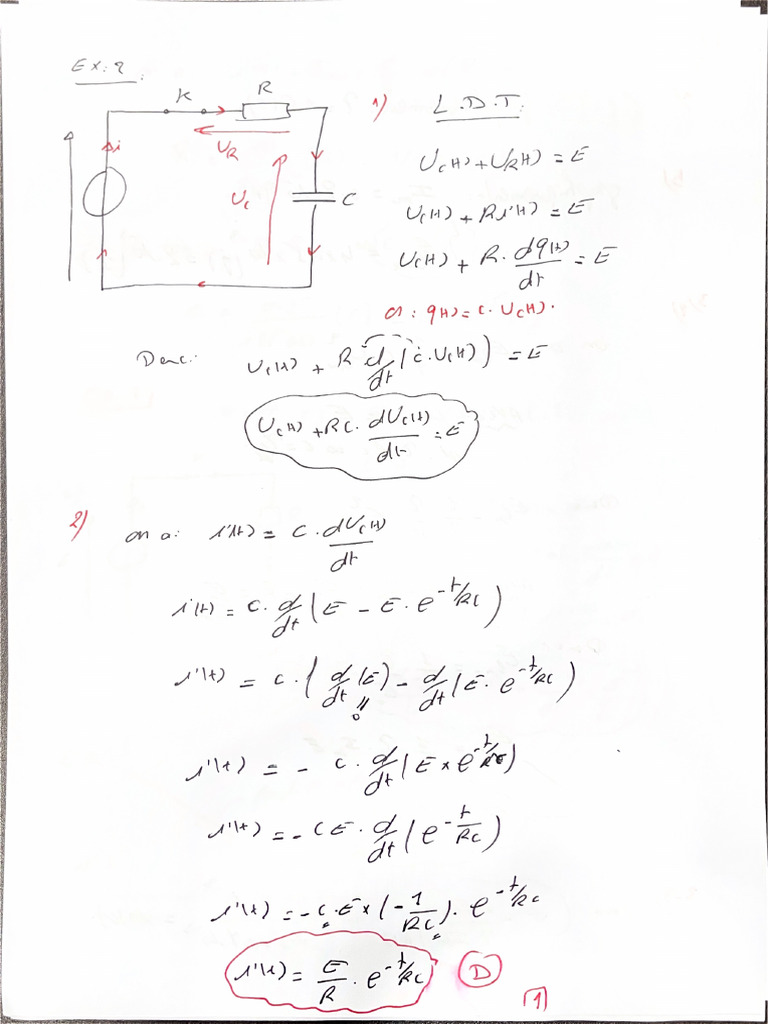 Ex: 2
K R
i
U_R
U_C
C
1) L.D.T:
U_C(t) + U_R(t) = E
U_C(t) + R i(t) = E
U_C(t) + R · dq(t)/dt = E
or : q(t) = C · U_C(t) ·
Donc: U_C(t) + R d/dt (C · U_C(t)) = E
U_C(t) + RC · dU_C(t)/dt = E
2) on a: i(t) = C · dU_C(t)/dt
i(t) = C · d/dt (E - E · e^(-t/RC))
i(t) = C · (d/dt (E) - d/dt (E · e^(-t/RC))
0
i(t) = - C · d/dt (E × e^(-t/RC))
i(t) = - CE · d/dt (e^(-t/RC))
i(t) = - C · E × (-1/RC) · e^(-t/RC)
i(t) = E/R · e^(-t/RC) D
1